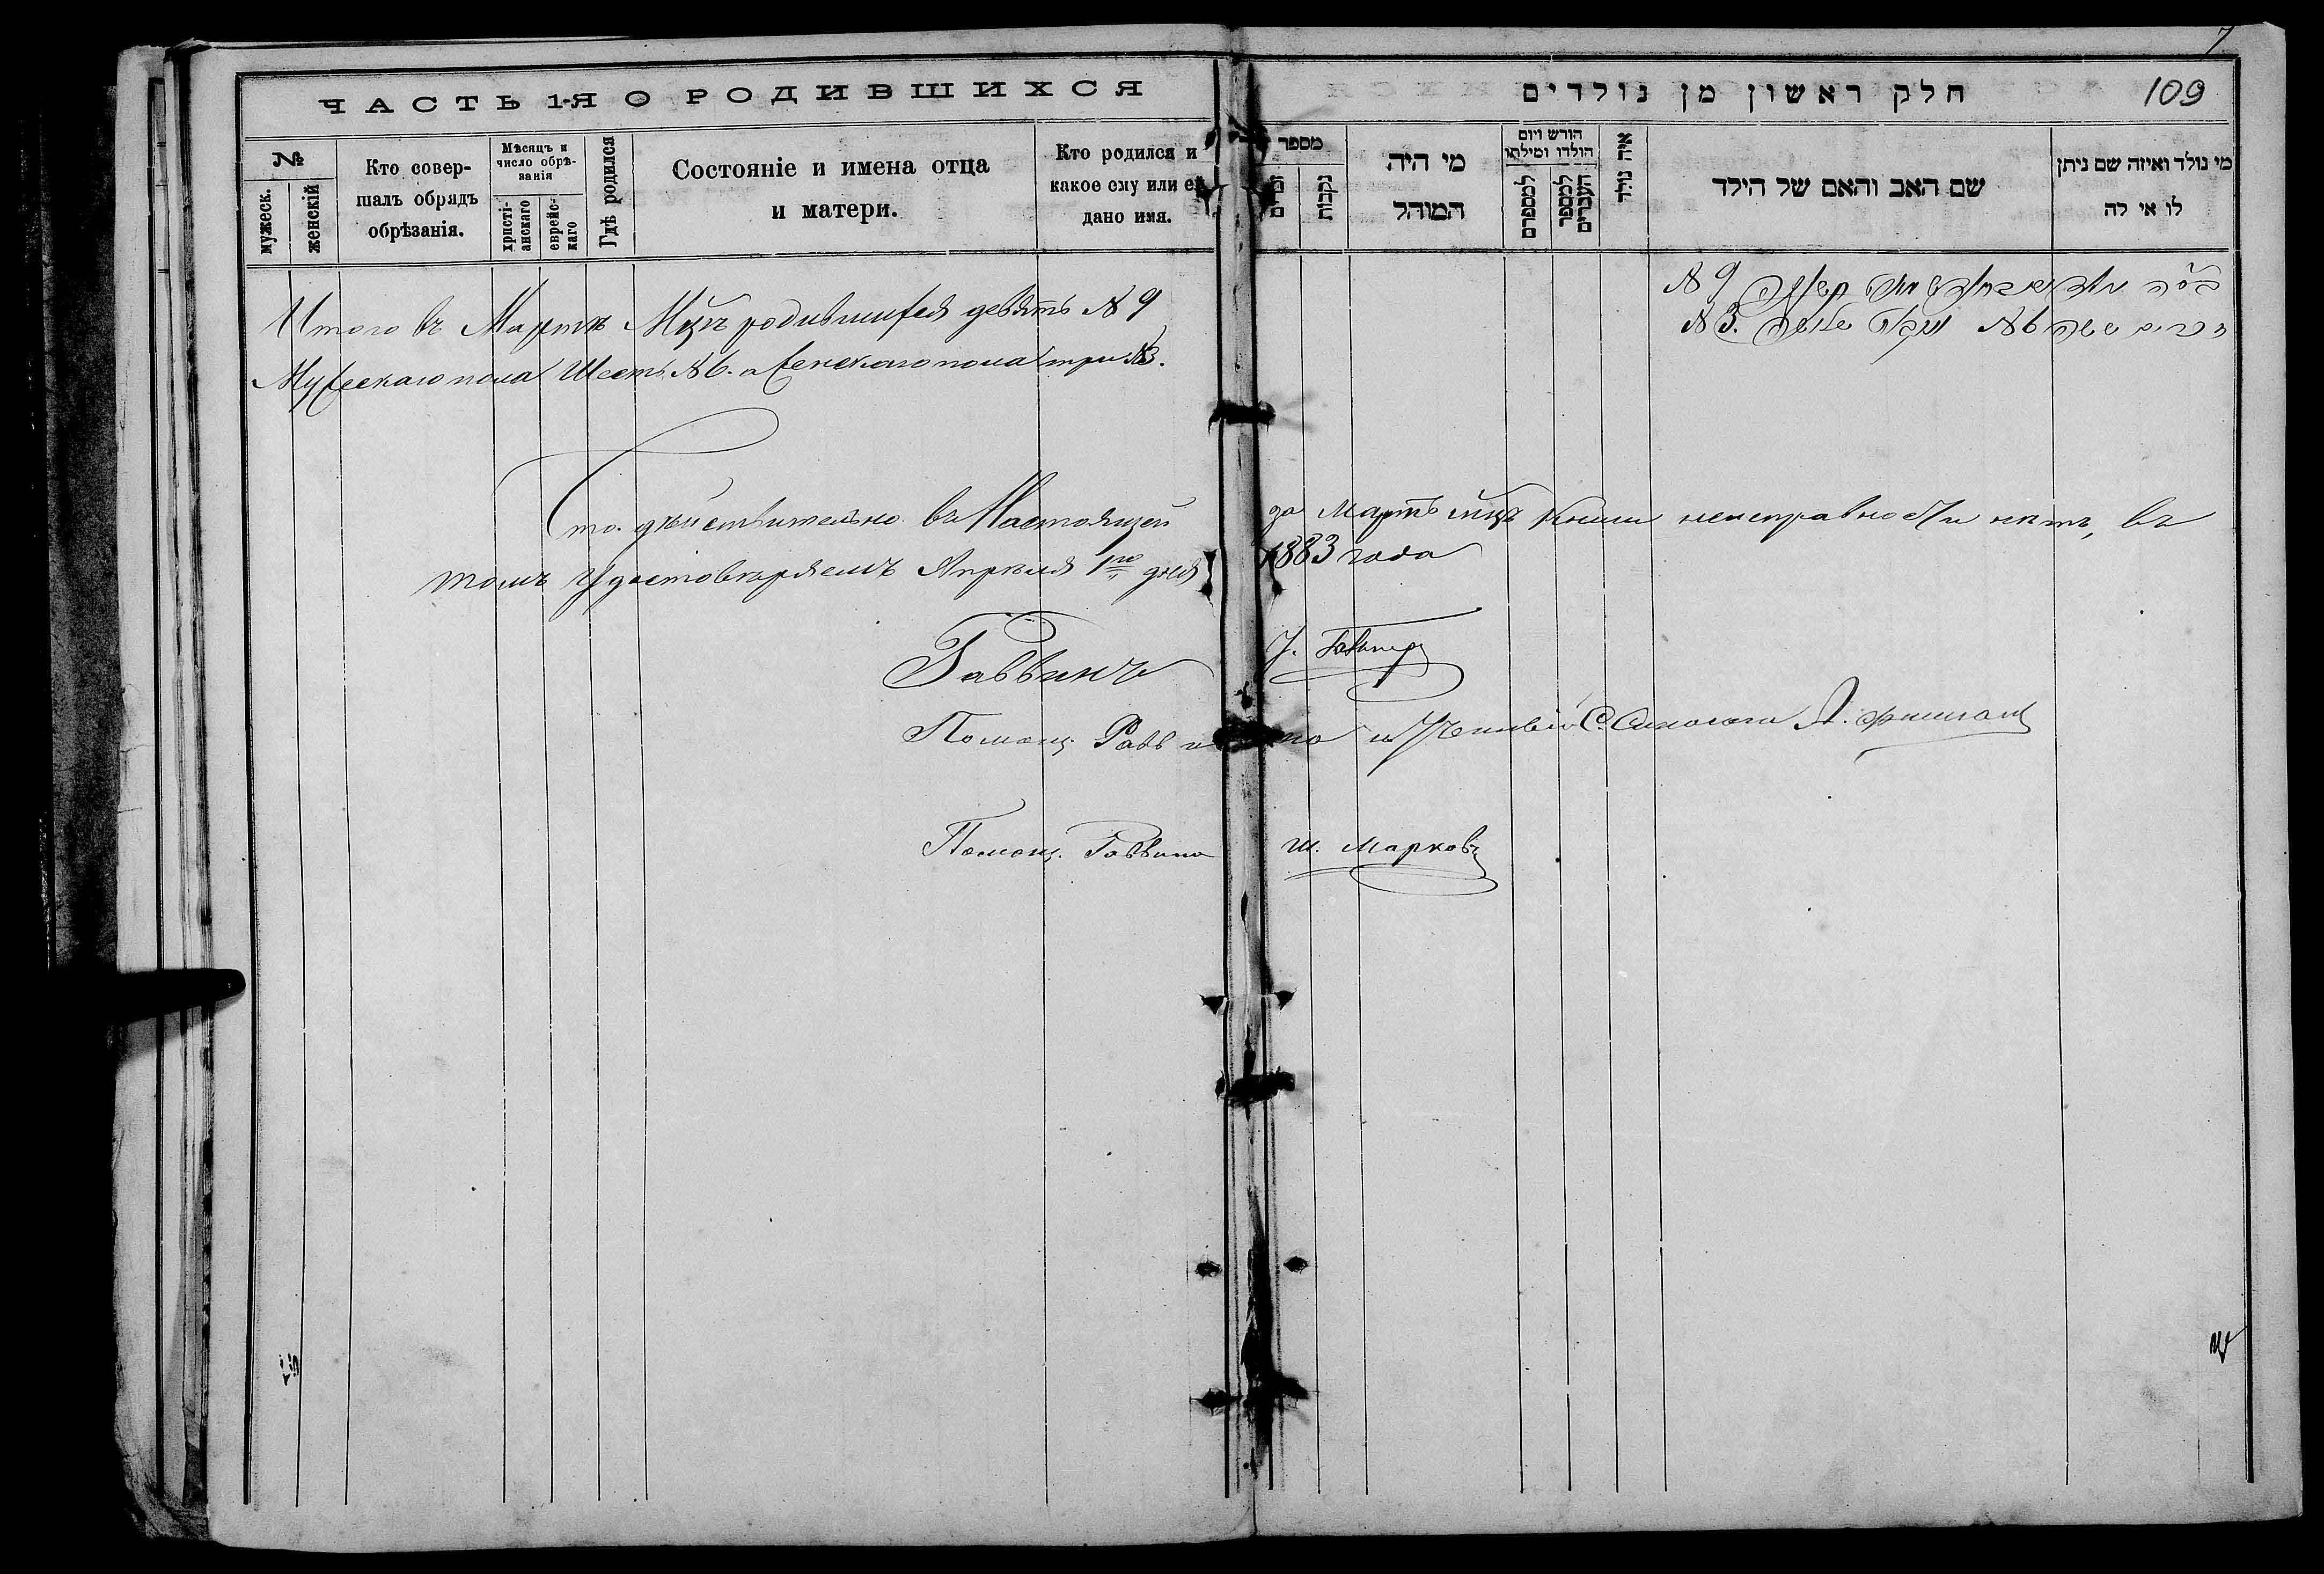 ЧАСТЬ 1-Я О РОДИВШИХСЯ
№
мужеск.
женскій
Кто совер-
шалъ обрядъ
обрѣзанія.
Мѣсяцъ и
число обрѣ-
занія
христі-
анскаго
еврейс-
каго
Гдѣ родился
Состояніе и имена отца
и матери.
Кто родился и
какое ему или ей
дано имя.
Итого въ Мартѣ Мцѣ родившихся девять № 9
Мужескаго пола Шесть № 6. а женскаго пола три № 3.
7
109
חלק ראשון מן נולדים
מספר
זכרים
נקבות
מי היה
המוהל
חודש ויום
הולדו ומילתו
למספרם
למספר
העברים
איה נולד
שם האב והאם של הילד
מי נולד ואיזה שם ניתן
לו אי לה
№ 9
זכרים ששה № 6 נקבות שלשה № 3.
Что дѣйствительно въ Настоящей за Мартъ мцъ книги неисправности нѣтъ, въ
томъ удостовѣряемъ Апрѣля 1го дня 1883 года
Раввинъ
Помощ. Раввина и Ученый С.
Помощ. Раввина Ш. Марковъ